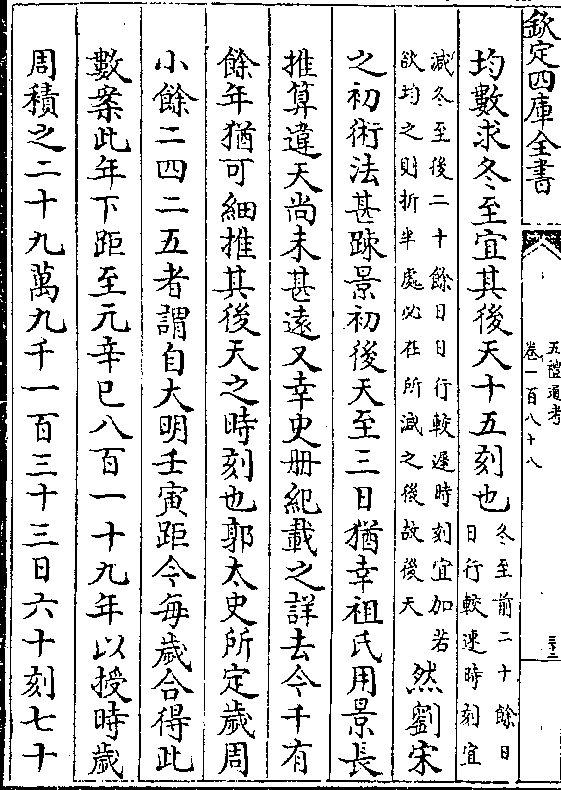 欽定四庫全書
五禮通考
卷一百八十八
三十三
均數求冬至宜其後天十五刻也冬至前二十餘日
日行較速時刻宜
減冬至後二十餘日日行較遲時刻宜加若
欲均之則折半處必在所減之後故後天
然劉宋
之初術法甚踈景初後天至三日猶幸祖氏用景長
推算違天尚未甚遠又幸史册紀載之詳去今千有
餘年猶可細推其後天之時刻也郭太史所定歲周
小餘二四二五者謂自大明壬寅距今每歲合得此
數案此年下距至元辛巳八百一十九年以授時歲
周積之二十九萬九千一百三十三日六十刻七十